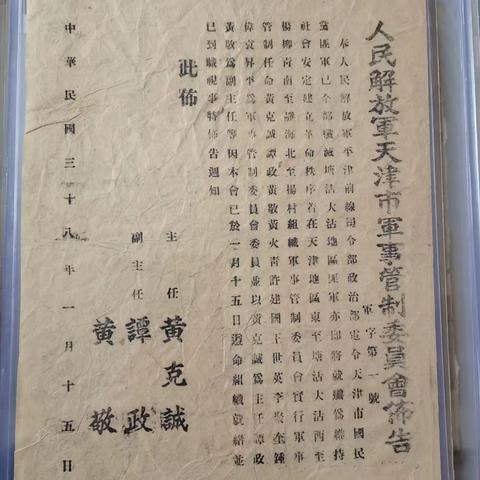 人民解放軍天津市軍事管制委員會佈告
軍字第一號
奉人民解放軍平津前線司令部政治部電令天津市國民
黨匪軍已全部殲滅塘沽大沽地區匪軍亦即將就殲爲維持
社會安定建立革命秩序着在天津地區東至塘沽大沽西至
楊柳青南至靜海北至楊村組織軍事管制委員會實行軍事
管制任命黃克誠譚政黃敬黃火青許建國王世英李聚奎鍾
偉袁昇平爲軍事管制委員會委員並以黃克誠爲主任譚政
黃敬爲副主任等因本會已於一月十五日遵命組織就緒並
已到職視事特佈告週知
此佈
主任 黃克誠
副主任 譚政
黃敬
中華民國三十八年一月十五日